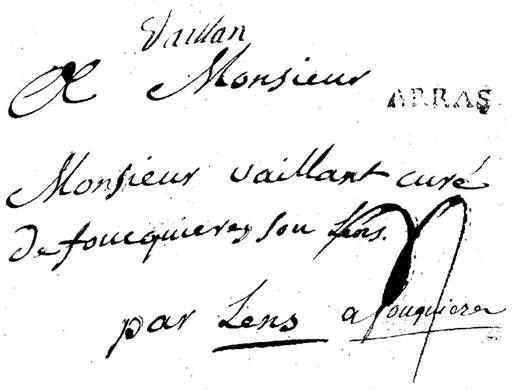 Vaillan
A Monsieur
ARRAS
Monsieur vaillant curé
de foucquieres sou Lens.
par Lens a fouquieres